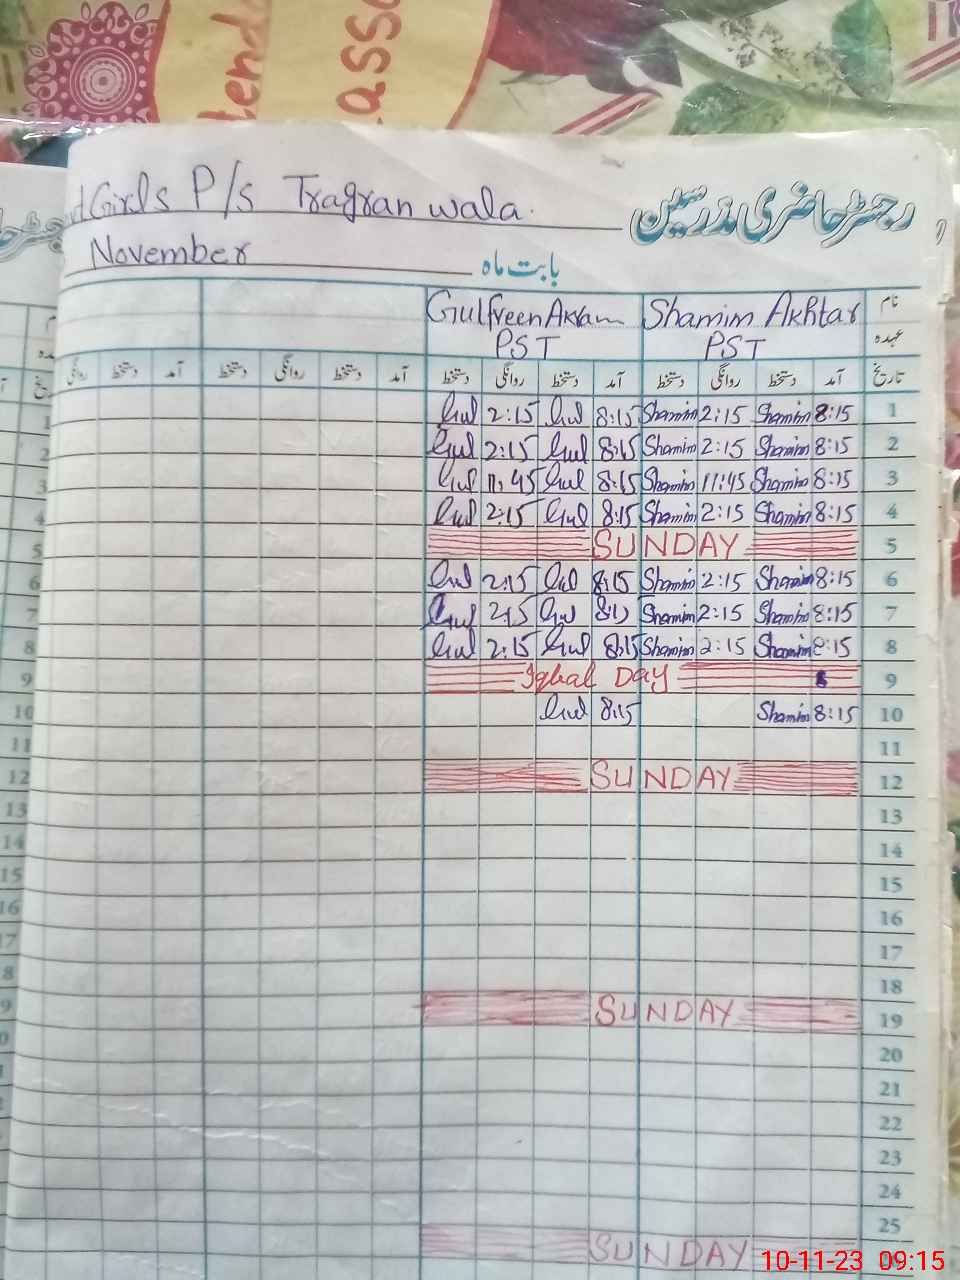 tend
asse
Girls P/s Tragran wala.
رجسٹر حاضری مدرسین
November
بابت ماہ
Gulfreen Akram Shamim Akhtar نام
PST PST عہدہ
روانگی دستخط آمد دستخط روانگی دستخط آمد دستخط روانگی دستخط آمد دستخط روانگی دستخط آمد تاریخ
Gul 2:15 Gul 8:15 Shamim 2:15 Shamim 8:15 1
Gul 2:15 Gul 8:15 Shamim 2:15 Shamim 8:15 2
Gul 11:45 Gul 8:15 Shamim 11:45 Shamim 8:15 3
Gul 2:15 Gul 8:15 Shamim 2:15 Shamim 8:15 4
SUNDAY 5
Gul 2:15 Gul 8:15 Shamim 2:15 Shamim 8:15 6
Gul 2:15 Gul 8:15 Shamim 2:15 Shamim 8:15 7
Gul 2:15 Gul 8:15 Shamim 2:15 Shamim 8:15 8
Iqbal Day 9
Gul 8:15 Shamim 8:15 10
11
SUNDAY 12
13
14
15
16
17
18
SUNDAY 19
20
21
22
23
24
25
SUNDAY
10-11-23 09:15